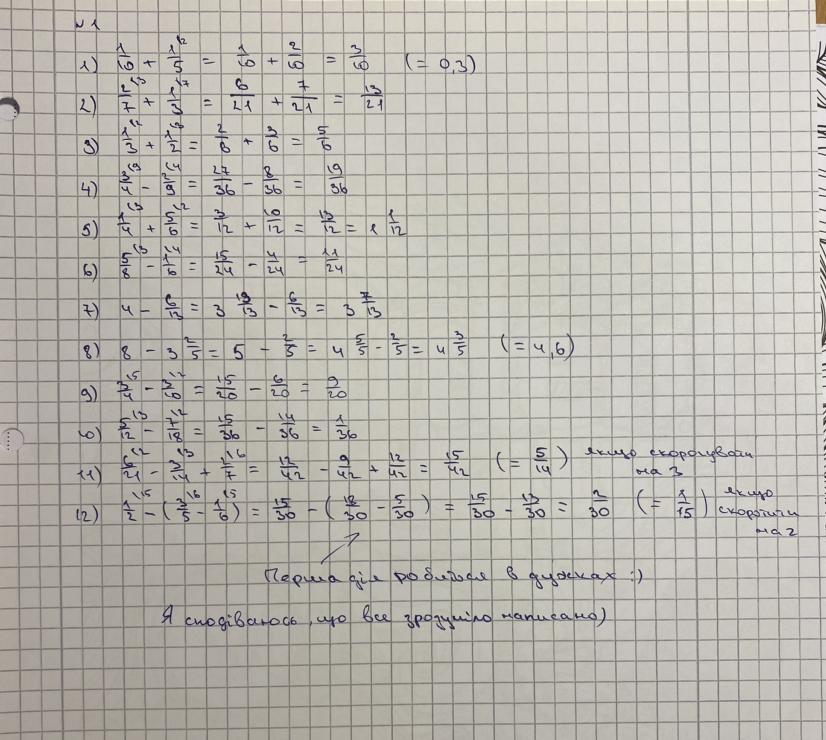 №1
1) 1/10 + 1/5 (2 = 1/10 + 2/10 = 3/10 (= 0,3)
2) 2/7 (3 + 1/3 (7 = 6/21 + 7/21 = 13/21
3) 1/3 (2 + 1/2 (3 = 2/6 + 3/6 = 5/6
4) 3/4 (9 - 2/9 (4 = 27/36 - 8/36 = 19/36
5) 1/4 (3 + 5/6 (2 = 3/12 + 10/12 = 13/12 = 1 1/12
6) 5/8 (3 - 1/6 (4 = 15/24 - 4/24 = 11/24
7) 4 - 6/13 = 3 13/13 - 6/13 = 3 7/13
8) 8 - 3 2/5 = 5 - 2/5 = 4 5/5 - 2/5 = 4 3/5 (= 4,6)
9) 3/4 (5 - 3/10 (2 = 15/20 - 6/20 = 9/20
10) 5/12 (3 - 7/18 (2 = 15/36 - 14/36 = 1/36
11) 6/21 (2 - 3/14 (3 + 1/7 (6 = 12/42 - 9/42 + 12/42 = 15/42 (= 5/14) якщо скорочувати
на 3
12) 1/2 (15 - (3/5 (6 - 1/6 (5) = 15/30 - (18/30 - 5/30) = 15/30 - 13/30 = 2/30 (= 1/15) якщо
скоротити
на 2
Перша дія робиться в дужках :)
Я сподіваюсь, що все зрозуміло написано)